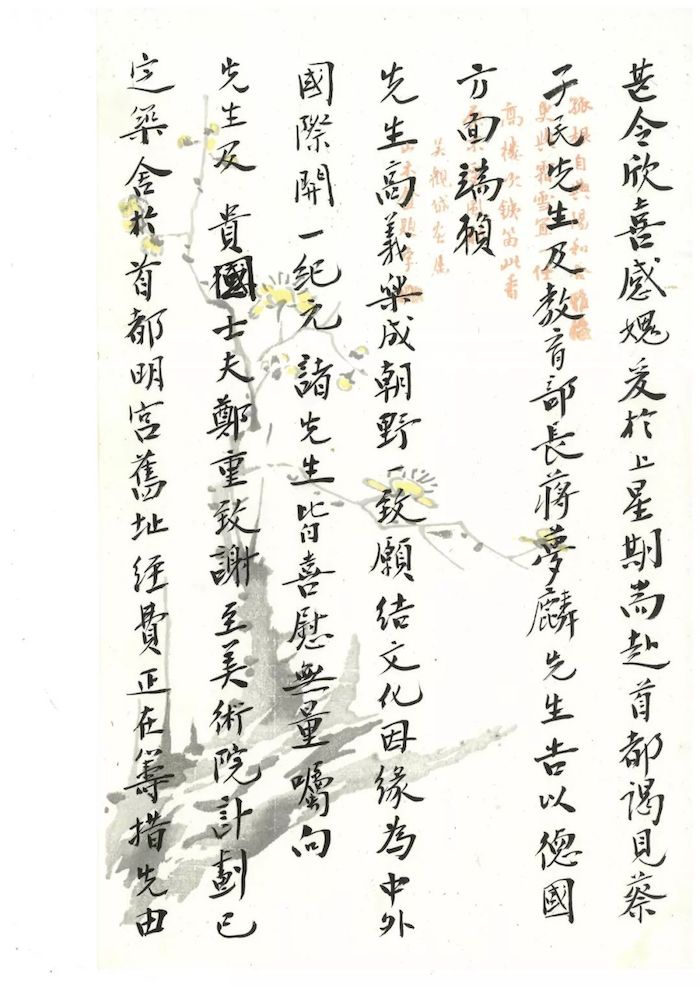 甚令欣喜感愧爰於上星期耑赴首都謁見蔡
孑民先生及教育部長蔣夢麟先生告以德國
方面端賴
先生高義樂成朝野一致願結文化因緣為中外
國際開一紀元 諸先生皆喜慰無量囑向
先生及 貴國士夫鄭重致謝至美術院計劃已
定築舍於首都明宮舊址經費正在籌措先由